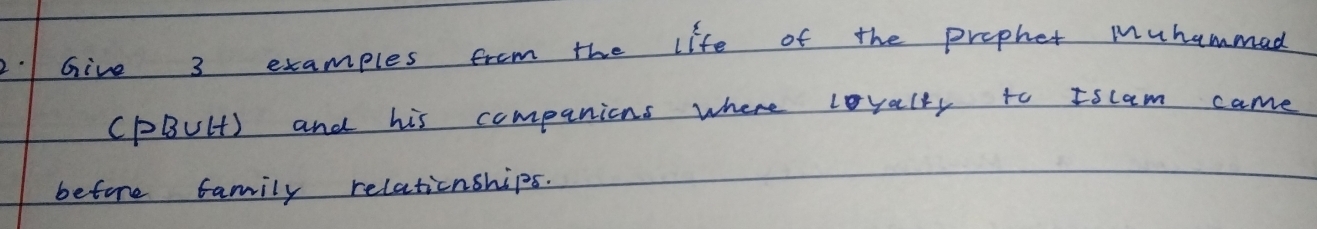 2. Give 3 examples from the life of the prophet Muhammad
(PBUH) and his companions where loyalty to Islam came
before family relationships.